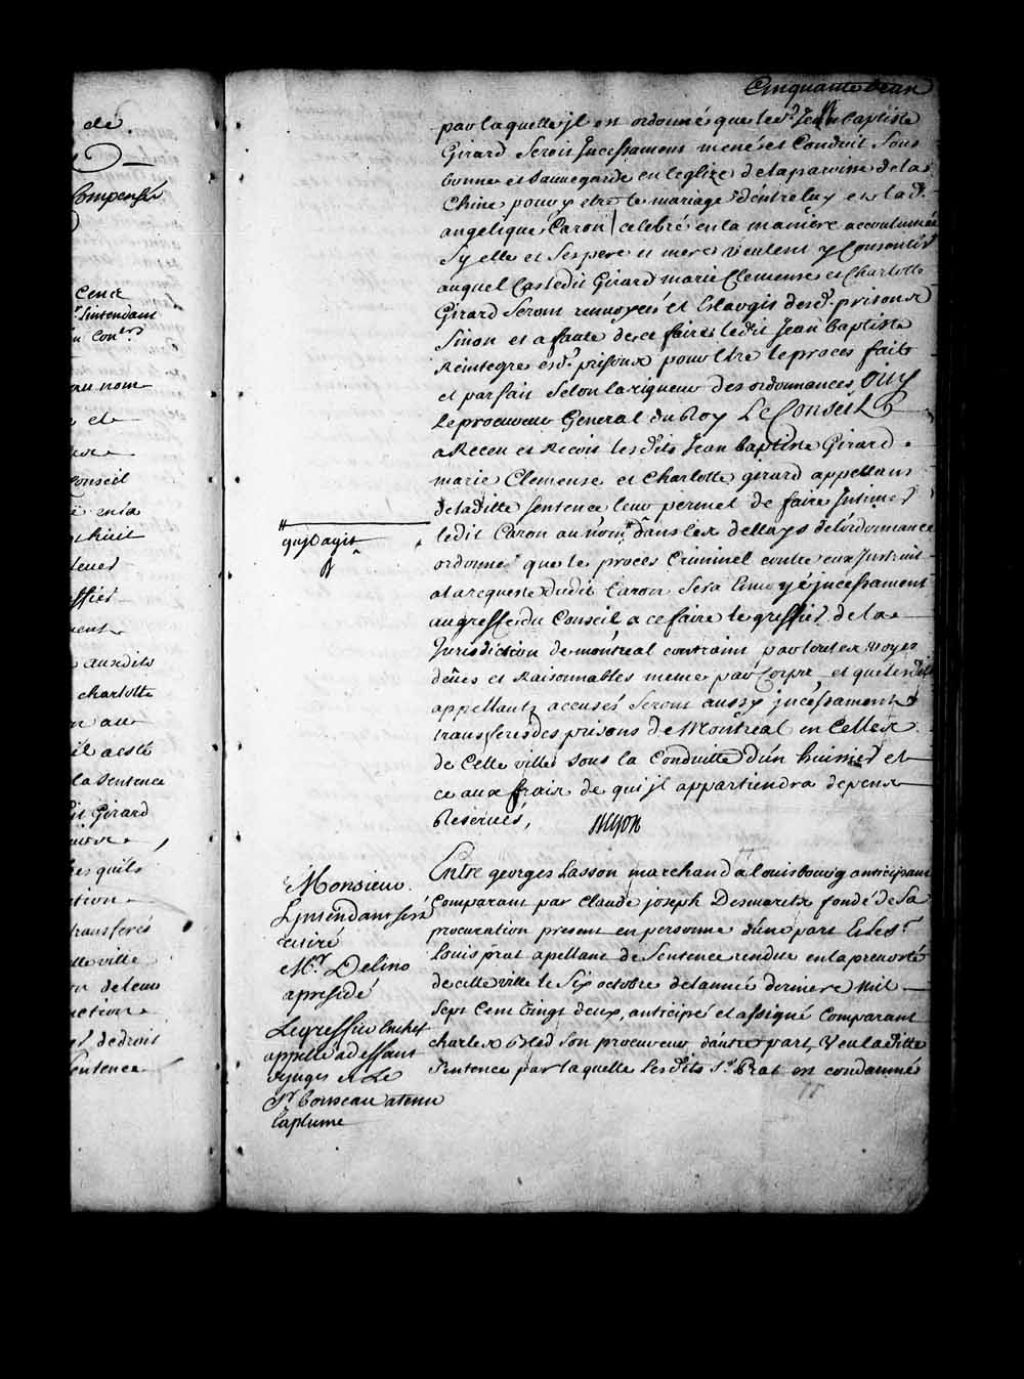 de
Compensé
Cent
Sr Lintendant
n Conrs
au nom
et
Conseil
é mis
huit
ent
auxdits
charlotte
n au
il a esté
La Sentence
dit Girard
es quils
tion
transferés
tte ville
ou de leur
uction
de droit
Sentence
Cinquante deux
par laquelle jl est ordonné que led. Jean baptiste
Girard Serois Jncessament mené et Conduit Sous
bonne et Sauvegarde en leglize de la paroisse de la
Chine pour y etre le mariage d'entre luy et lad.
angelique Caron celebré en la maniere accoutumée
Sy elle et Ses pere et mere veulent y Consentir
auquel Cas ledit Girard marie Clemense et Charlotte
Girard Seront renvoyés et Eslargis desd. prisons
Sinon et a faute de ce faire ledit Jean baptiste
Reintegre esd. prisons pour Etre le proces fait
et parfait Selon la rigueur des ordonnances, Ouy
Le procureur General du Roy Le Conseil
a Receu et Recoit lesdits Jean baptiste Girard
marie Clemense et Charlotte girard appellans
de laditte Sentence leur permet de faire Jntimer
ledit Caron au nom dans les dellays de l'ordonnance
ordonne que le proces Criminel contre eux Jnstruit
a la requeste dudit Caron Sera Envoyé jncessament
au greffe du Conseil a ce faire le greffier de la
Jurisdiction de montreal contraint par toutes voyes
dües et Raisonnables meme par Corps, et que lesdits
appellants accusés Seront aussy jncessament
transferés des prisons de Montreal en Celles
de Cette ville Sous la Conduitte d'un huissier et
ce aux frais de qui jl appartiendra depens
Reservés,
quj agit
Monsieur
Lintendant s'est
retiré
Mr. Delino
a presidé
Le greffier en chef
appellé a deffaut
de juges et Le
Sr boisseau a tenu
la plume
Entre georges Lasson marchand a louisbourg anticipant
Comparant par Claude joseph Desmarets fondé de Sa
procuration present en personne d'une part Et le Sr
Louis prat apellant de Sentence rendue en la prevosté
de cette ville le Six octobre de l'année derniere Mil
Sept Cent Vingt deux, anticipé et assigné Comparant
charles Bled Son procureur d'autre part, Veu laditte
Sentence par laquelle Lesdits Sr. Prat est condamné